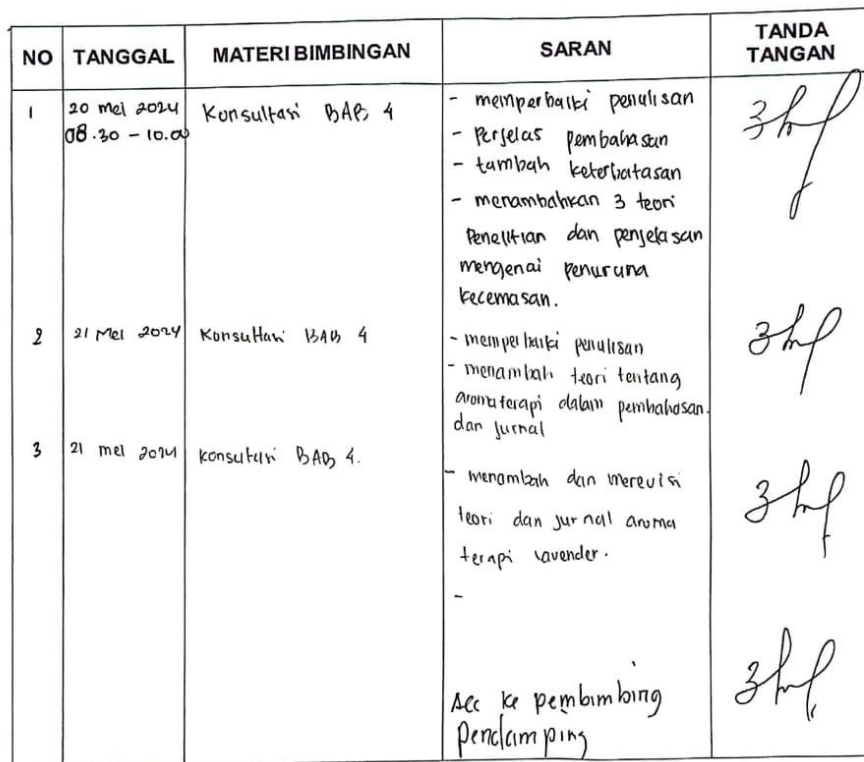 NO TANGGAL MATERI BIMBINGAN SARAN TANDA TANGAN
1 20 mei 2024 Konsultasi BAB 4 - memperbaiki penulisan
08.30 - 10.00 - Perjelas pembahasan
- tambah keterbatasan
- menambahkan 3 teori
Penelitian dan penjelasan
mengenai penuruna
kecemasan.
2 21 Mei 2024 Konsultasi BAB 4 - memperbaiki penulisan
- menambah teori tentang
aromaterapi dalam pembahasan.
dan jurnal
3 21 mei 2024 konsultasi BAB 4.
- menambah dan merevisi
teori dan jurnal aroma
terapi lavender.
-
Acc ke pembimbing
pendamping